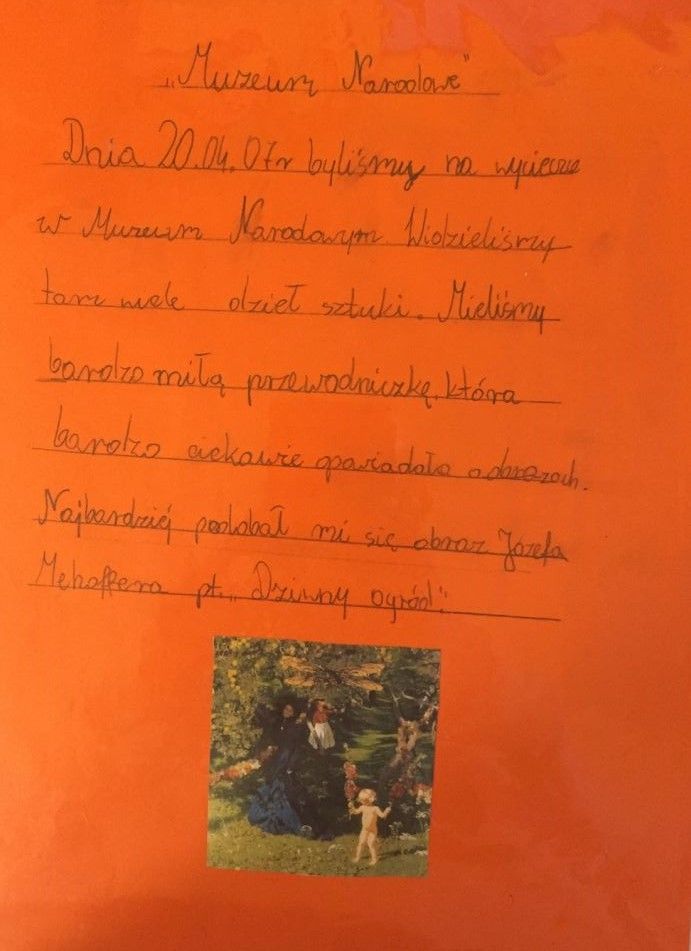 „Muzeum Narodowe"
Dnia 20.04.07r byliśmy na wyciecze
w Muzeum Narodowym. Widzieliśmy
tam wiele dzieł sztuki. Mieliśmy
bardzo miłą przewodniczkę, która
bardzo ciekawie opowiadała o obrazach.
Najbardziej podobał mi się obraz Józefa
Mehoffera pt. „Dziwny ogród".